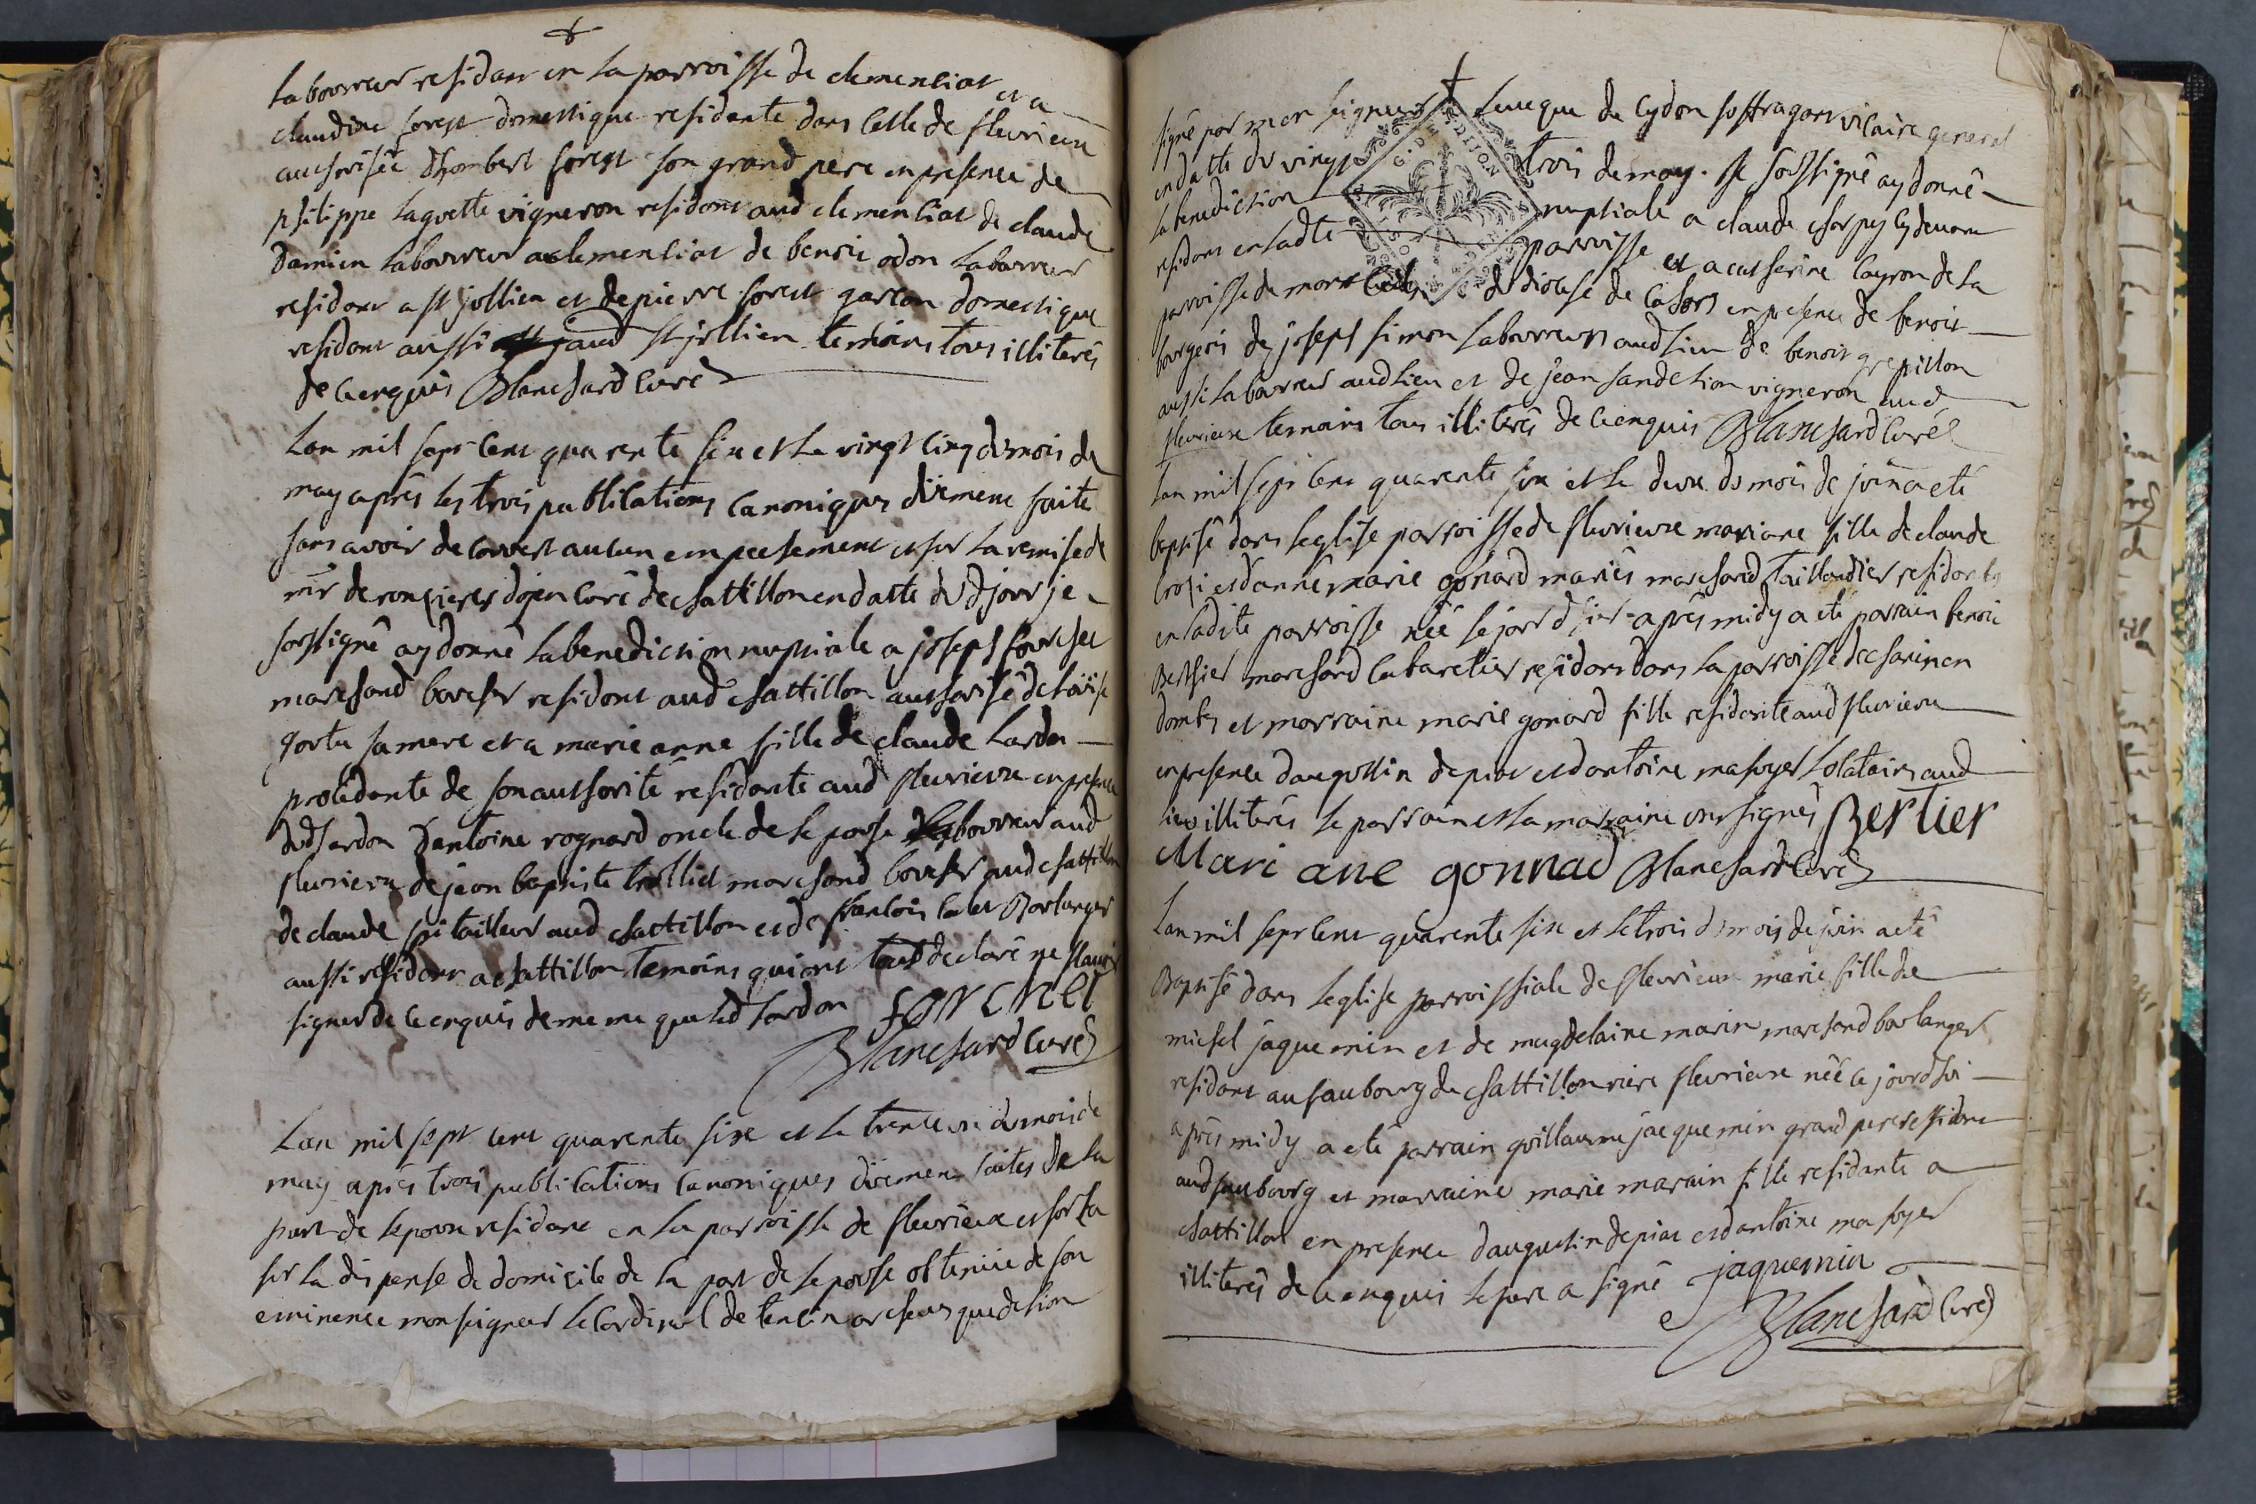 laboureur residant en la parroisse de clemenciat et a
claudine forest domestique residente dans celle de fleurieux
authorisée dhombert forest son grand pere en presence de
philippe laguette vigneron residant aud clemenciat de claude
Damien laboureur a clemenciat de benoit odon laboureur
residant a st jullien et de pierre forest garcon domestique
residant aussi aud st jullien temoins tous illiterés
de ce enquis Blanchard Curé
Lan mil sept cent quarente six et le vingt cinq du mois de
may aprés les trois publications canoniques düement faite
sans avoir decouvert aucun empechement et sur la remise de
mr de doyen curé de chattillon en datte dud jour je
soussigné ay donné la benediction nuptiale a joseph fourchet
marchand boucher residant aud chattillon authorisé de
sa mere et a marie anne fille de claude Lardon
procedante de son authorité residante aud fleurieux en presence
dud Lardon Dantoine rognard oncle de lepouse laboureur aud
fleurieux de jean baptiste trolliet marchand boucher aud chattillon
de claude tailleur aud chattillon et de francois Boulanger
aussi residant a chattillon temoins qui ont tous declaré ne scavoir
signer de ce enquis de meme que led Lardon fourchet
Blanchard Curé
Lan mil sept cent quarente six et le trente un du mois de
may aprés trois publications canoniques düement faites de la
part de lepoux residant en la parroisse de fleurieux et sur la
sur la dispense de domicile de la part de lepouse obtenüe de son
eminence monseigneur le Cardinal de tencin archevesque de lion
signé par monseigneur Leveque de Cydon suffragant vicaire general
en datte du vingt trois de may. je soussigné ay donné
la benediction nuptiale a claude charpy cy devant
residant en ladte parroisse et a catherine cayron de la
parroisse de du diocese de Cahors en presence de benoit
bourgeois de joseph simon laboureurs aud lieu de benoit grepillon
aussi laboureur aud lieu et de jean sandelion vigneron aud
fleurieux temoins tous illiterés de ce enquis Blanchard Curé
Lan mil sept cent quarente six et le deux du mois de juin a eté
baptisé dans leglise parroisse de fleurieux mariane fille de claude
et danne marie gonard mariés marchand taillandier residants
en ladite parroisse née le jour dhier aprés midy a eté parrain benoit
Berthier marchand cabaretier residant dans la parroisse de
dombes et marraine marie gonard fille residante aud fleurieux
en presence daugustin depiat et dantoine mafoyer Locataires aud
lieu illiterés le parrain et la marraine ont signés Bertier
Mari ane gonnad Blanchard Curé
Lan mil sept cent quarente six et le trois du mois de juin a eté
Baptisé dans leglise parroissiale de fleurieux marie fille de
michel jaquemin et de magdelaine marin marchand boulanger
residant au faubourg de chattillon riere fleurieux née ce jourdhui
aprés midy a eté parrain guillaume jacquemin grand pere residant
aud faubourg et marraine marie marain fille residante a
chattillon en presence daugustin depiat et dantoine mafoyer
illiterés de ce enquis le pere a signé jaquemin
Blanchard Curé